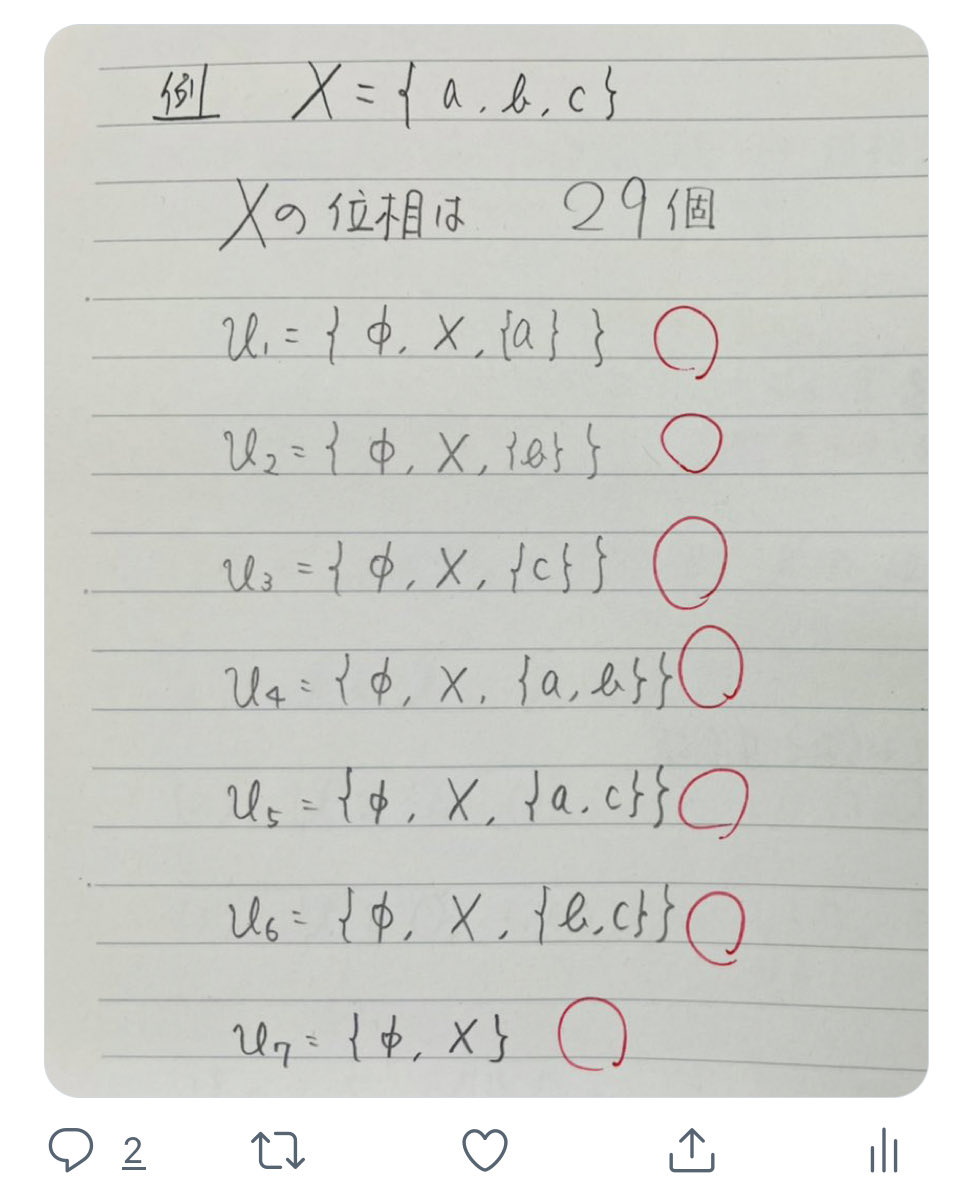 例 X = { a, b, c }
Xの位相は 29個
U₁ = { φ, X, {a} }
U₂ = { φ, X, {b} }
U₃ = { φ, X, {c} }
U₄ = { φ, X, {a, b} }
U₅ = { φ, X, {a, c} }
U₆ = { φ, X, {b, c} }
U₇ = { φ, X }
2